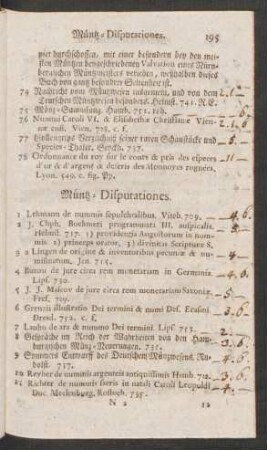 Müntz-Disputationes. 195
pier durchschossen, mit einer besondern bey den mei-
sten Müntzen beygeschriebenen Valvation eines Nürn-
bergischen Müntzmeisters versehen, weßhalben dieses
Buch von gantz besondrer Seltenheit ist.
74 Nachricht vom Müntzwesen insgemein, und von dem
Teutschen Müntzwesen besonders. Helmst. 741. R.E.
75 Müntz-Sammlung. Hamb. 751. ieb.
76 Nummi Caroli VI. & Elisabethæ Christinæ Vien-
næ cusi. Vien. 728. c. f.
77 Verzeichniß seiner raren Schaustücke und
Species-Thaler. 737.
78 Ordonnance du roy sur le cours & prix des especes
d'or & d'argent & descris des Monnoyes rognées,
Lyon. 549. c. fig. Pp.
Müntz-Disputationes.
1 Lehmann de nummis sepulchralibus. Viteb. 709. - 4. 6.
2 J. Chph. Boehmeri programmata III. auspicalia.
Helmst. 717. 1) providentia Augustorum in num-
mis. 2) princeps orator. 3) divinitas Scripturæ S.
3 Lingen de origine & inventoribus pecuniæ & nu-
mismatum, Jen. 715.
4 de jure circa rem monetariam in Germania.
Lips. 750.
5 J. J. Mascov de jure circa rem monetariam Saxoniæ.
6 illustratio Dei termini & numi Des. Erasmi
Dresd. 752. c. f.
7 Laubn de ara & nummo Dei termini Lips. 752.
8 Gespräche im Reich der Wahrheiten von den Ham-
burgischen Müntz-Neuerungen. 735.
9 Entwurff des Deutschen Müntzwesens. Ru-
dolst. 737.
10 Reyher de nummis argenteis antiquissimis
11 Richter de nummis in natali Caroli Leopoldi
Duc. Meclenburg, Rostoch. 735.
N 2 12